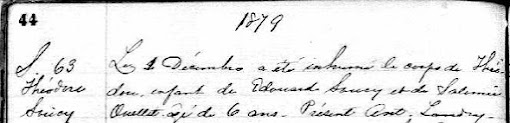 44
1879
S 63
Théodore
Soucy
Le 1 Décembre a été inhumé le corps de Théo-
dore, enfant de Edouard Soucy et de Salomée
Ouellet agé de 6 ans. Présent Ant. Landry